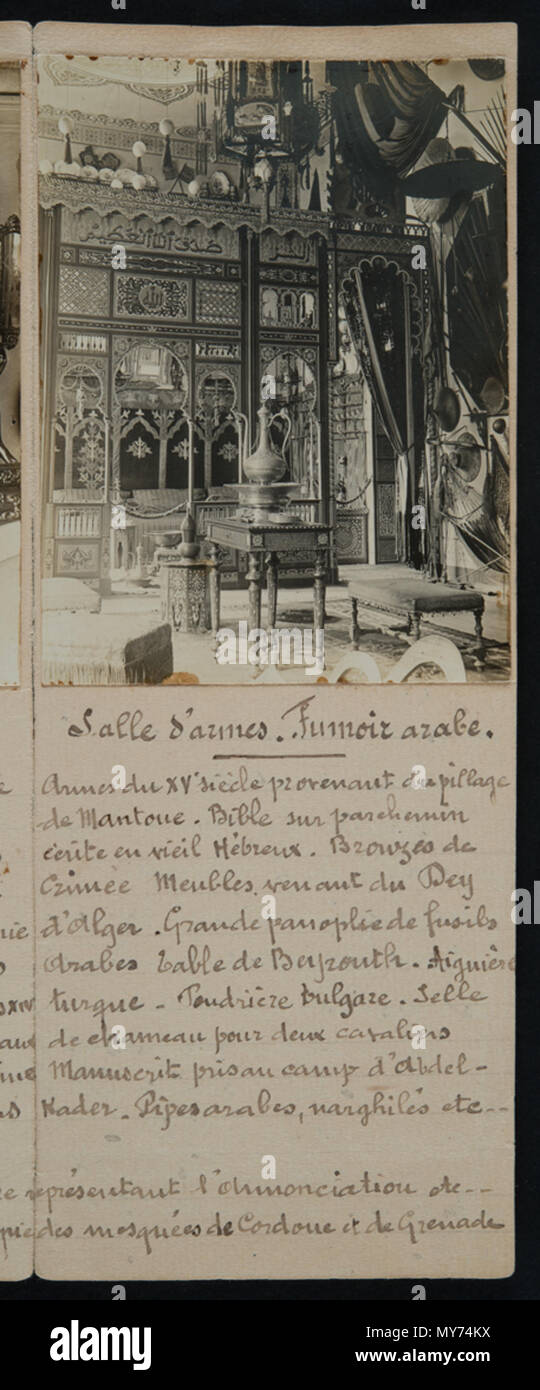 صدق الله العظيم
الله
Salle d'armes. Fumoir arabe.
Armes du XVe siècle provenant du pillage
de Mantoue. Bible sur parchemin
écrite en vieil Hébreux. Bronzes de
Crimée Meubles venant du Dey
nie d'Alger. Grande panoplie de fusils
Arabes Table de Beyrouth. Aiguière
XIV turque - Poudrière bulgare. Selle
aux de chameau pour deux cavaliers
Manuscrit pris au camp d'Abdel-
Kader. Pipes arabes, narghilés etc--
re représentant l'Annonciation etc--
pie des mosquées de Cordoue et de Grenade
alamy
Image ID: MY74KX
www.alamy.com